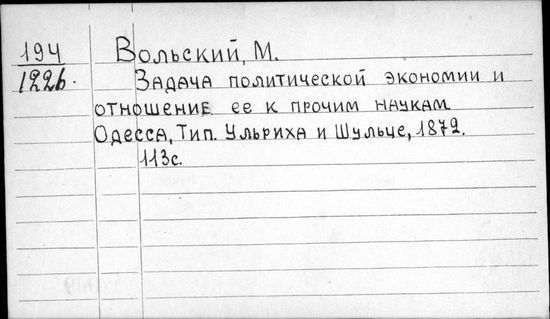 194 Вольский, М.
122б. Задача политической экономии и
отношение ее к прочим наукам
Одесса, Тип. Ульриха и Шульце, 1872.
113с.